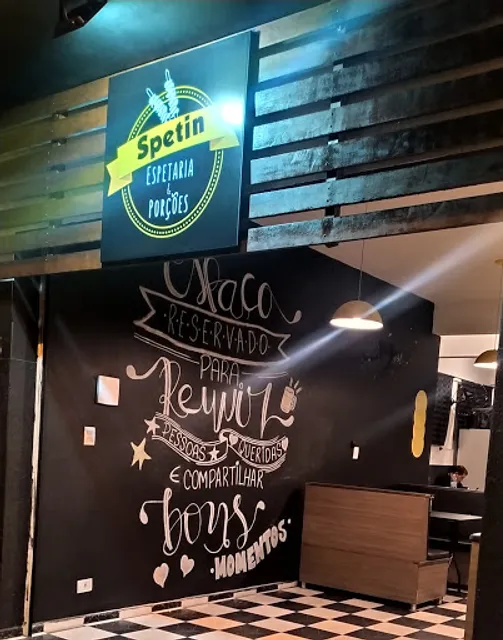 Spetin
ESPETARIA
&
PORÇÕES
Espaço
RESERVADO
PARA
Reunir
PESSOAS QUERIDAS
E COMPARTILHAR
bons
MOMENTOS